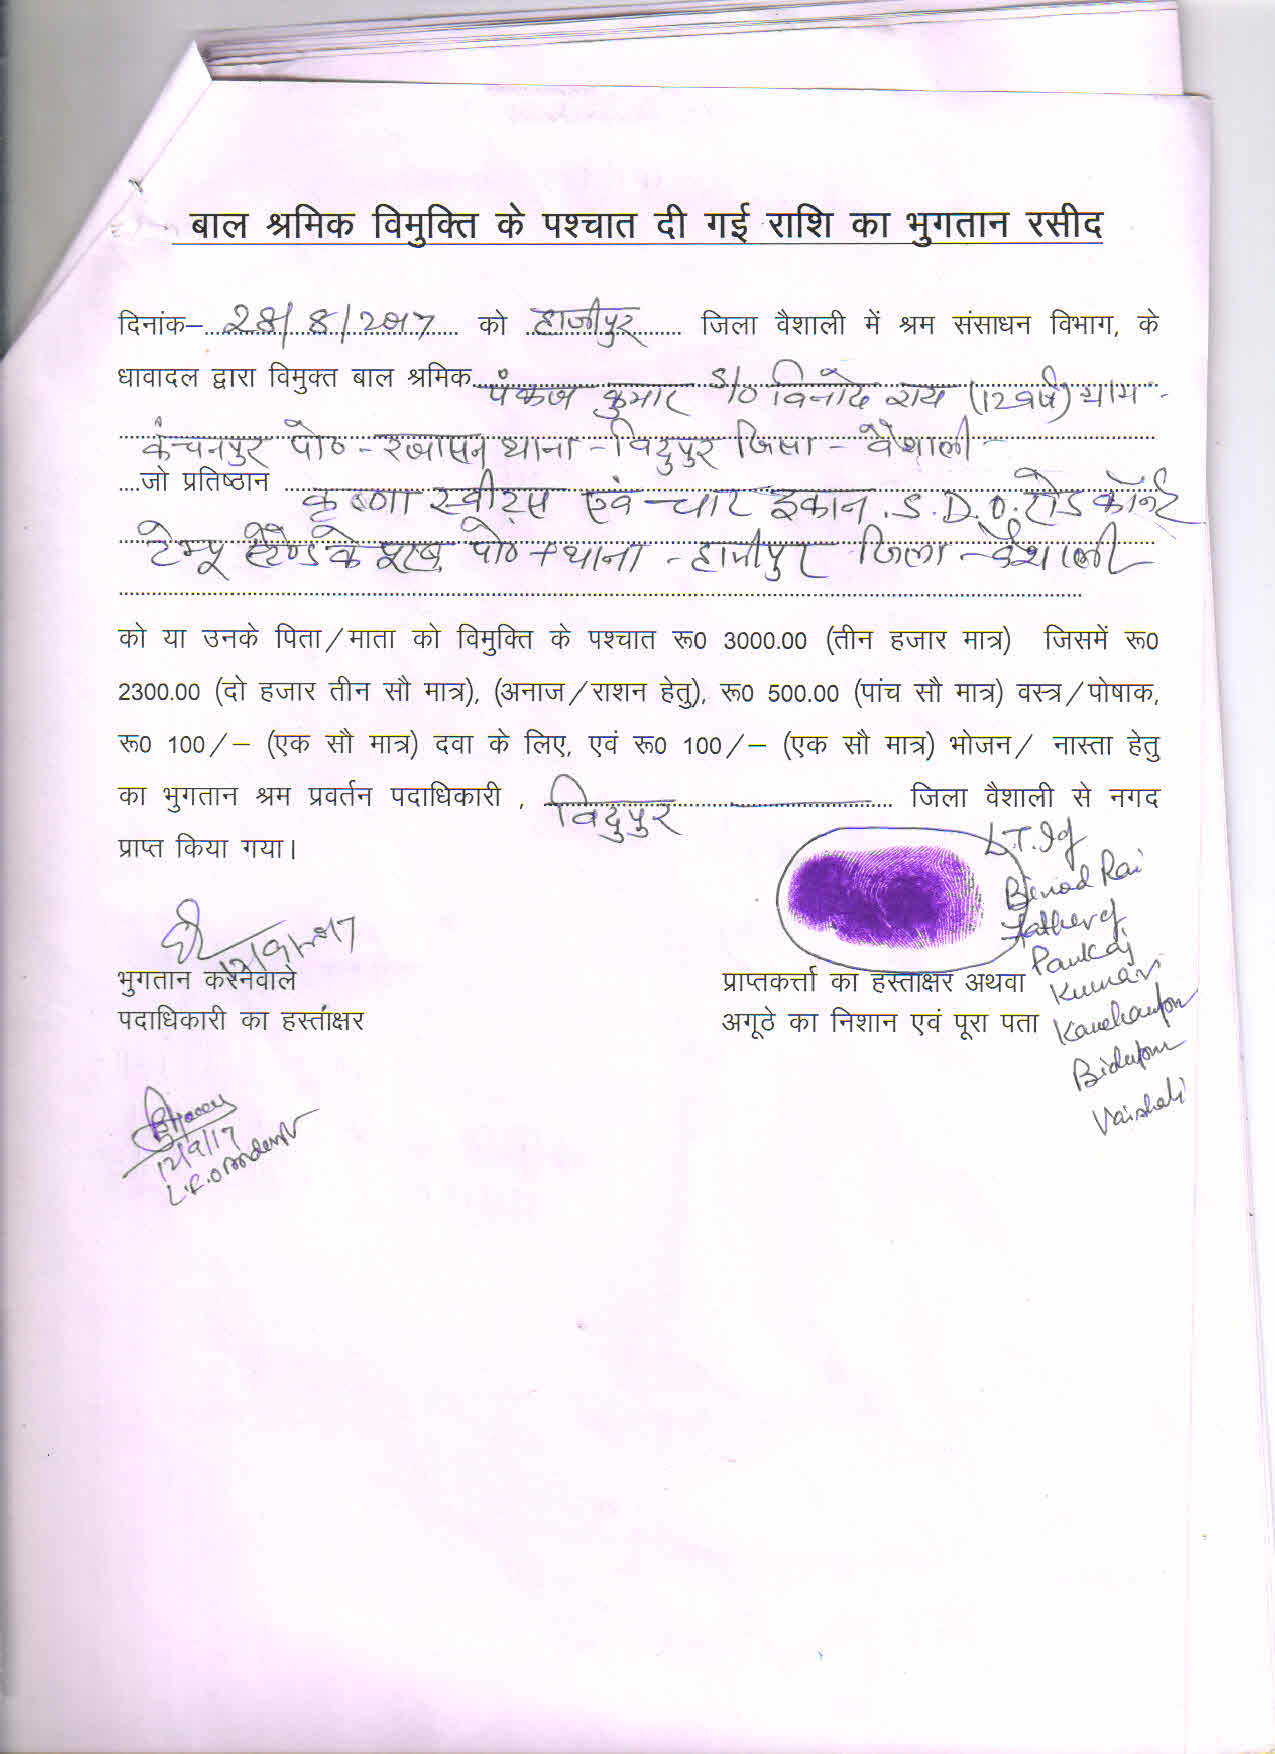 बाल श्रमिक विमुक्ति के पश्चात दी गई राशि का भुगतान रसीद
दिनांक– 28/8/2017 को हाजीपुर जिला वैशाली में श्रम संसाधन विभाग, के
धावादल द्वारा विमुक्त बाल श्रमिक पंकज कुमार S/o विनोद राय (12 वर्ष) ग्राम -
कंचनपुर पो० - थाना - विदुपुर जिला - वैशाली -
जो प्रतिष्ठान कृष्णा स्वीट्स एवं चाट दुकान, S.D.O. रोड कॉर्नर
टेम्पू स्टैण्ड के पो० + थाना - हाजीपुर जिला - वैशाली
को या उनके पिता/माता को विमुक्ति के पश्चात रू0 3000.00 (तीन हजार मात्र) जिसमें रू0
2300.00 (दो हजार तीन सौ मात्र), (अनाज/राशन हेतु), रू0 500.00 (पांच सौ मात्र) वस्त्र/पोषाक,
रू0 100/– (एक सौ मात्र) दवा के लिए, एवं रू0 100/– (एक सौ मात्र) भोजन/ नास्ता हेतु
का भुगतान श्रम प्रवर्तन पदाधिकारी , विदुपुर जिला वैशाली से नगद
प्राप्त किया गया।
L.T.I of
Binod Rai
Father of
Pankaj
Kumar
Kanchanpur
Bidupur
Vaishali
12/9/2017
भुगतान करनेवाले
पदाधिकारी का हस्ताक्षर
प्राप्तकर्त्ता का हस्ताक्षर अथवा
अगूठे का निशान एवं पूरा पता
12/9/17